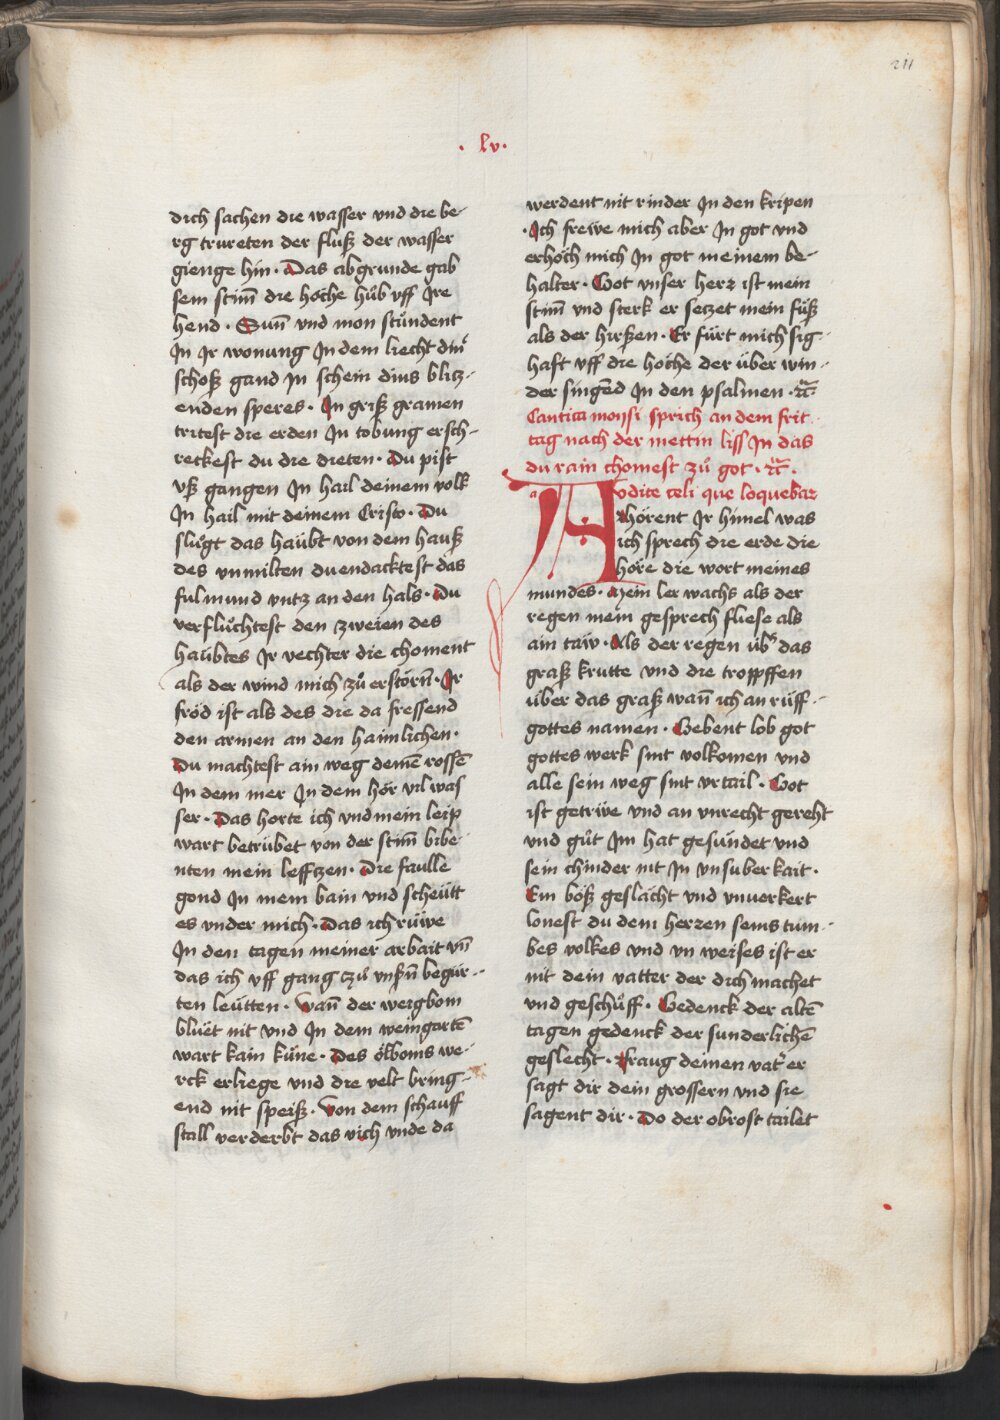 211
· lv ·
dich sachen die wasser vnd die be-
rg trureten der fluß der wasser
gienge hin · Das abgrunde gab
sein stim̄ die höche hůb vff Jre
hend · Sun̄ vnd mon stůndent
Jn Jr wonung Jn dem liecht din̄
schoß gand Jn schein dins blicz-
enden speres · Jn griß gramen
tritest die erden Jn tobung ersch-
reckest du die dieten · Du pist
vß gangen Jn hail deinem volk
Jn hail mit deinem Cristo · Du
slůgt das haübt von dem hauß
des vnmilten du endacktest das
fulmund vntz an den hals · Du
verflůchtest den zweien des
haübtes Jr vechter die choment
als der wind mich zů erstörn̄ · Jr
fröd ist als des die da fressend
den armen an den haimlichen ·
Du machtest ain weg deinē rossē
Jn dem mer Jn dem hör vil was
ser · Das horte ich vnd mein leip
wart betrübet von der stim̄ bibe-
nten mein lefftzen · Die faulle
gond Jn mein bain vnd scheütt
es vnder mich · Das ich rüwe
Jn den tagen meiner arbait vn̄
das ich vff gang zů vnsn̄ begür-
ten leütten · Wan̄ der weigbom
blüet nit vnd Jn dem weingartē
wart kain küne · Des ölboms we-
rck erliege vnd die velt bring-
end nit speiß · Von dem schauff
stall verderbt das vich vnde da
werdent nit rinder Jn den kripen
· Jch frewe mich aber Jn got vnd
erhöch mich Jn got meinem be-
halter · Got vnser herz ist mein
stim̄ vnd sterk er seczet mein füß
als der hirßen · Er fürt mich sig-
haft vff die höche der über win-
der singēd Jn den psalmen · r̄c̄
Cantica moysi sprich an dem frit
tag nach der mettin liss Jn das
du rain chomest zů got · r̄c̄ ·
Avdite celi que loquebar
Ahörent Jr himel was
ich sprech die erde die
höre die wort meines
mundes · Mein ler wachs als der
regen mein gesprech fliese als
ain taw · Als der regen üb das
graß krutte vnd die troppffen
über das graß wan̄ ich an rüff-
gottes namen · Gebent lob got
gottes werk sint volkomen vnd
alle sein weg sint vrtail · Got
ist getrüe vnd an vnrecht gereht
vnd gůt Jm hat gesündet vnd
sein chinder nit Jn vnsuberkait ·
Ein böß geslächt vnd vnuerkert
lonest du dem herzen seins tum-
bes volkes vnd vn weises ist er
nit dein vatter der dich machet
vnd geschůff · Gedenck der altē
tagen gedenck der sunderlichē
geslecht · Fraug deinen vat er
sagt dir dein grossern vnd sie
sagent dir · Do der obrost tailet